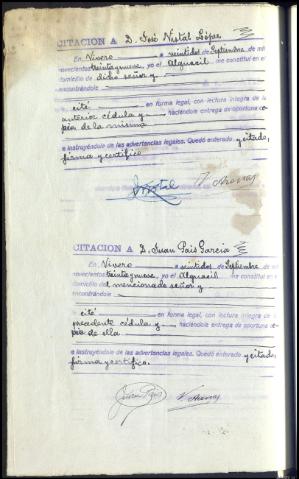 CITACION A D. José Vistal López
En Vivero a veintidos de Septiembre de mil
novecientos treintaynueve yo el Alguacil me constituí en el
domicilio de dicho señor y
encontrándole
cité en forma legal, con lectura íntegra de la
anterior cédula y haciéndole entrega de oportuna co-
pia de la misma
e instruyéndole de las advertencias legales. Quedó enterado y citado,
firma y certifico.
CITACION A D. Juan Pais García
En Vivero a veintidos de Septiembre de mil
novecientos treintaynueve yo el Alguacil me constituí en el
domicilio del mencionado señor y
encontrándole
cité en forma legal, con lectura íntegra de la
precedente cédula y haciéndole entrega de oportuna co-
pia de ella
e instruyéndole de las advertencias legales. Quedó enterado y citado,
firma y certifico.
Juan Pais